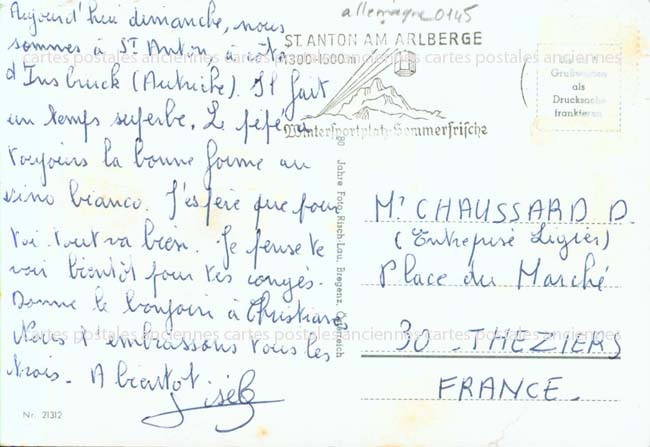 Aujourd'hui dimanche, nous
sommes à St Anton à côté
d'Insbruck (Autriche). Il fait
un temps superbe. Le pépé a
toujours la bonne forme au
vino bianco. J'espère que pour
toi tout va bien. Je pense te
voir bientôt pour tes congés.
Donne le bonjour à Christiane
Nous t'embrassons tous les
trois. A bientôt
Nr. 21312
allemagne 0145
ST. ANTON AM ARLBERGE
1300-1500
Wintersportplatz-Sommerfrische
Grußworten
als
Drucksache
frankieren
80 Jahre Foto Risch-Lau, Bregenz, Österreich
Mr CHAUSSARD D.
(Entreprise Ligier)
Place du Marché
30 - THEZIERS
FRANCE.
cartes postales anciennes cartes postales anciennes cartes postales anciennes
cartes postales anciennes cartes postales anciennes cartes postales anciennes